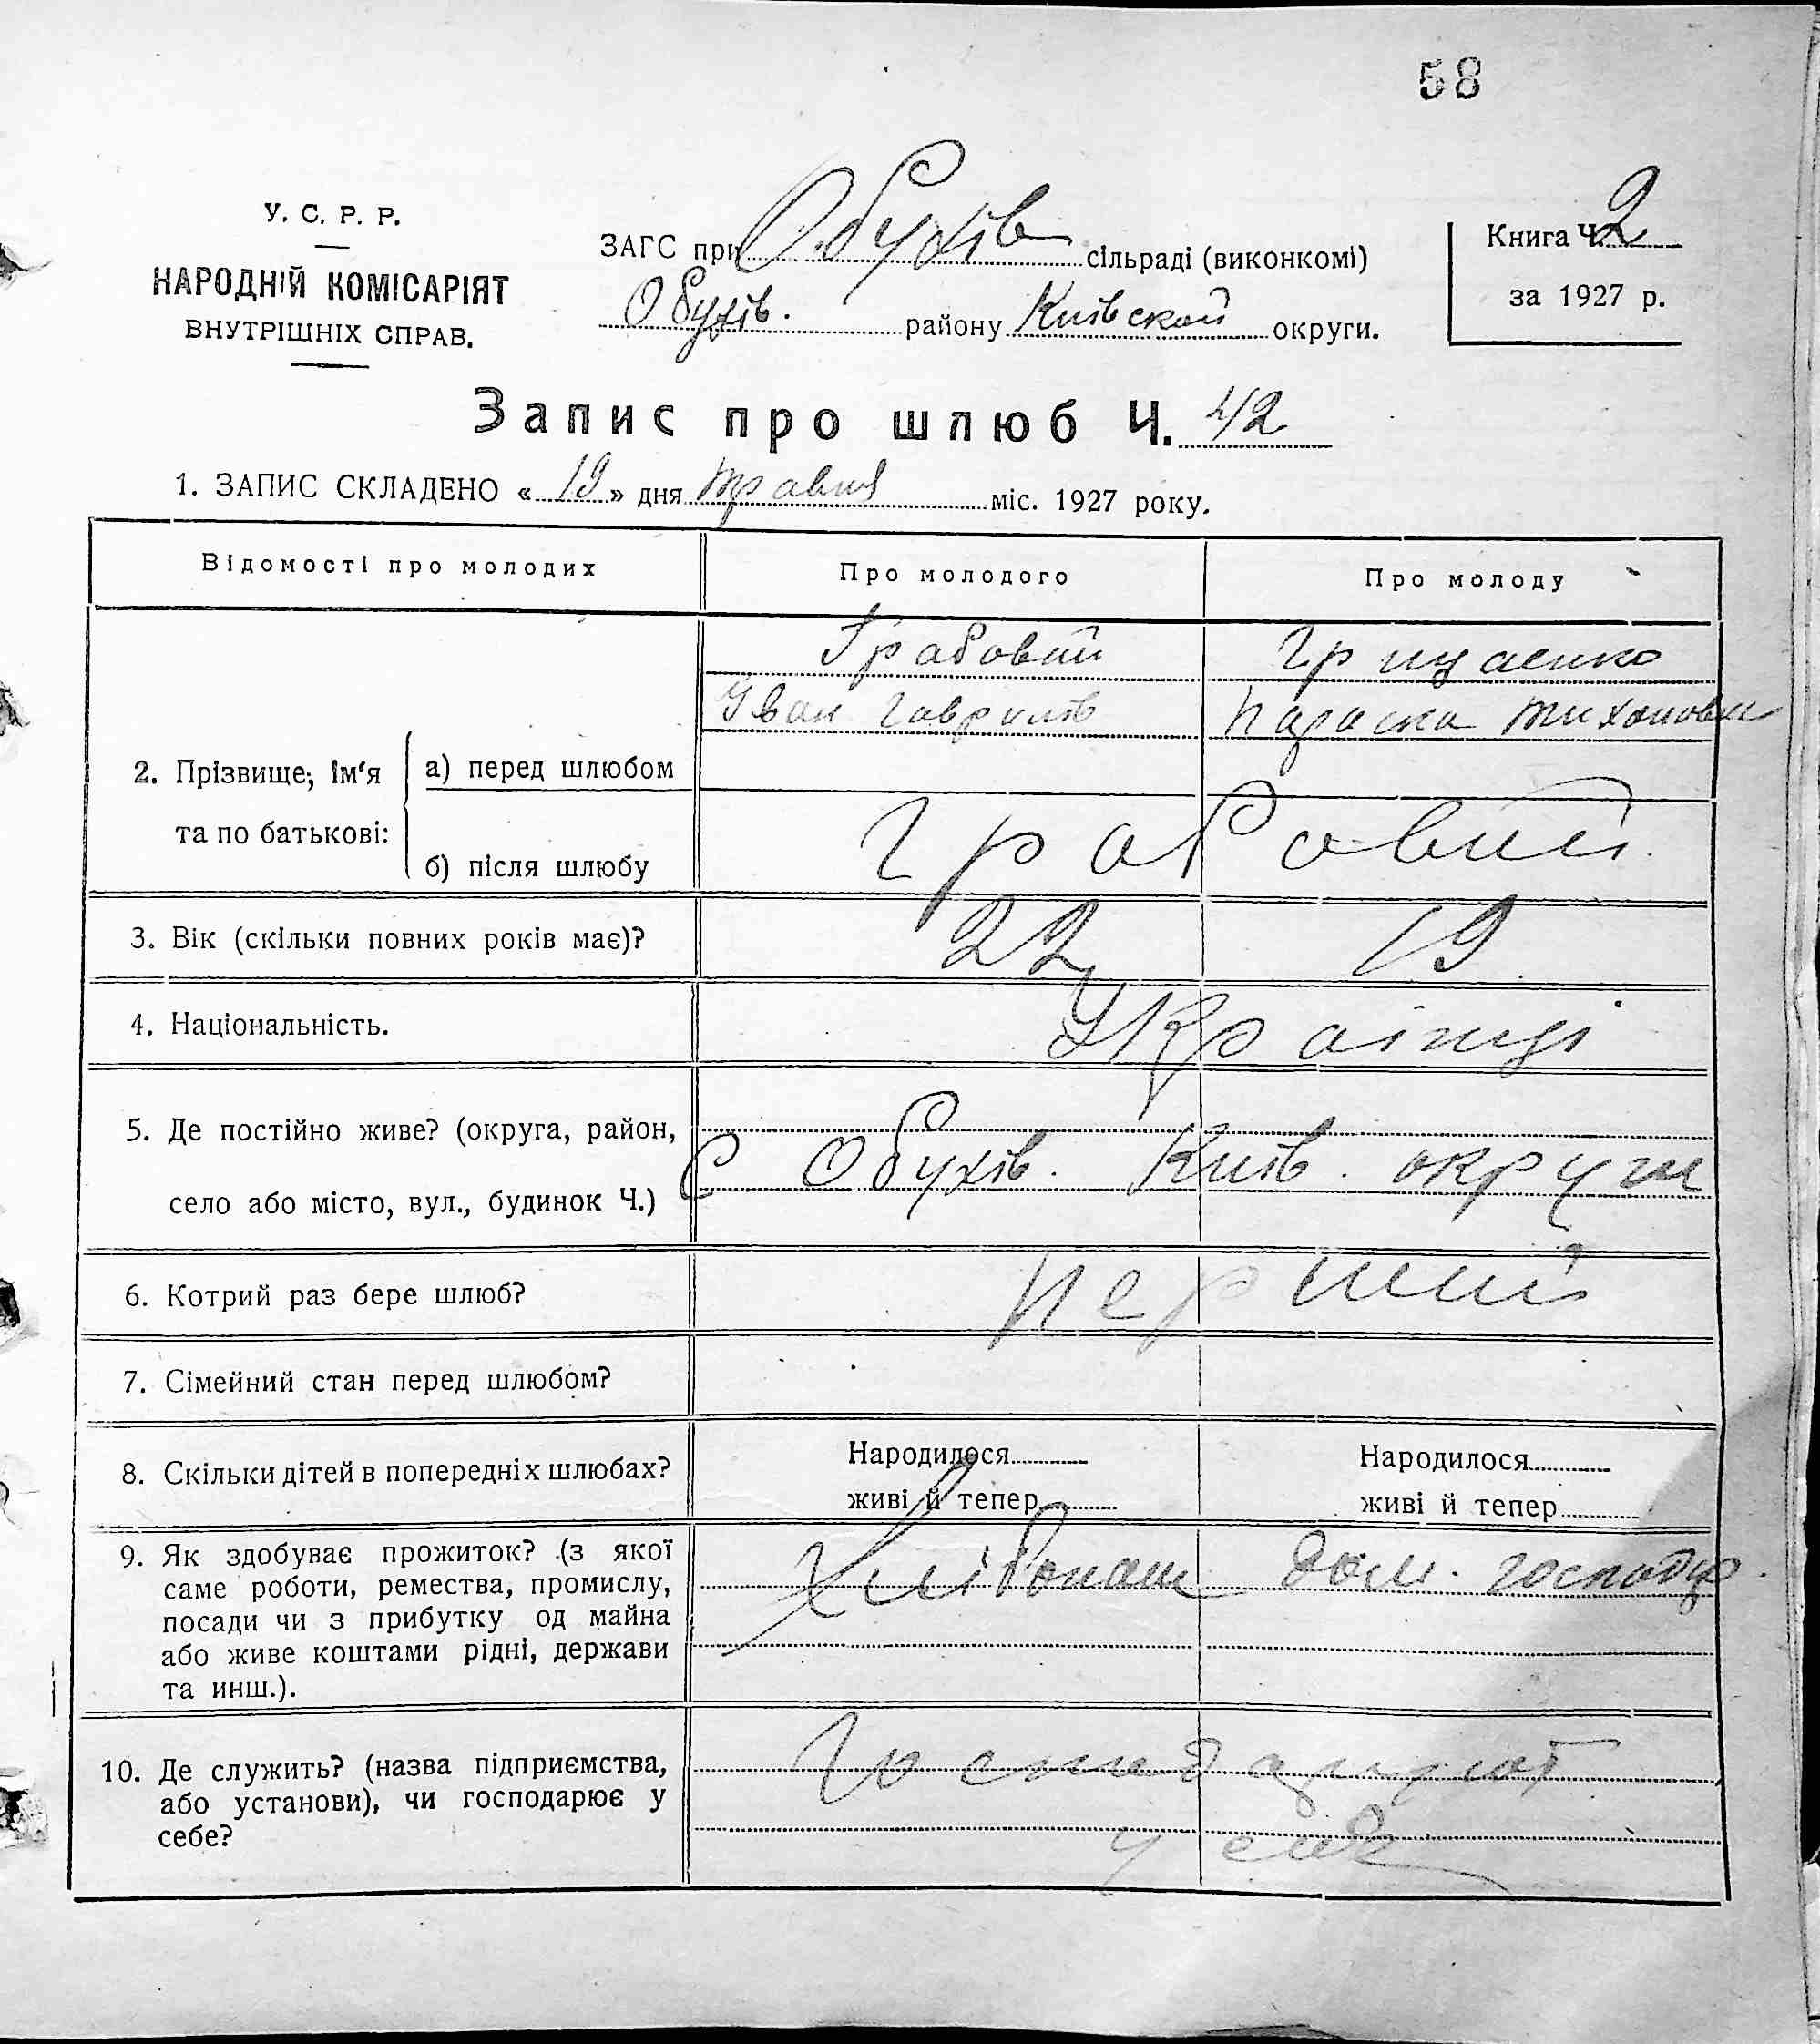 58
У. С. Р. Р.
НАРОДНІЙ КОМІСАРІЯТ
ВНУТРІШНІХ СПРАВ.
ЗАГС при Обухів сільраді (виконкомі)
Обухів. району Київской округи.
Книга Ч. 2
за 1927 р.
Запис про шлюб Ч. 42
1. ЗАПИС СКЛАДЕНО « 19 » дня травня міс. 1927 року.
Відомості про молодих Про молодого Про молоду
Грабовий Грищенко
Іван Гаврилів Параска Тихоновн
2. Прізвище, ім'я та по батькові:
а) перед шлюбом
б) після шлюбу Грабовий
3. Вік (скільки повних років має)? 22 19
4. Національність. Українці
5. Де постійно живе? (округа, район,
село або місто, вул., будинок Ч.) С Обухів. Київ. округи
6. Котрий раз бере шлюб? перший
7. Сімейний стан перед шлюбом?
8. Скільки дітей в попередніх шлюбах? Народилося Народилося
живі й тепер живі й тепер
9. Як здобуває прожиток? (з якої
саме роботи, ремества, промислу,
посади чи з прибутку од майна
або живе коштами рідні, держави
та инш.).
Хлібопаш дом. господар.
10. Де служить? (назва підприємства,
або установи), чи господарює у
себе?
Господарюют
у себе